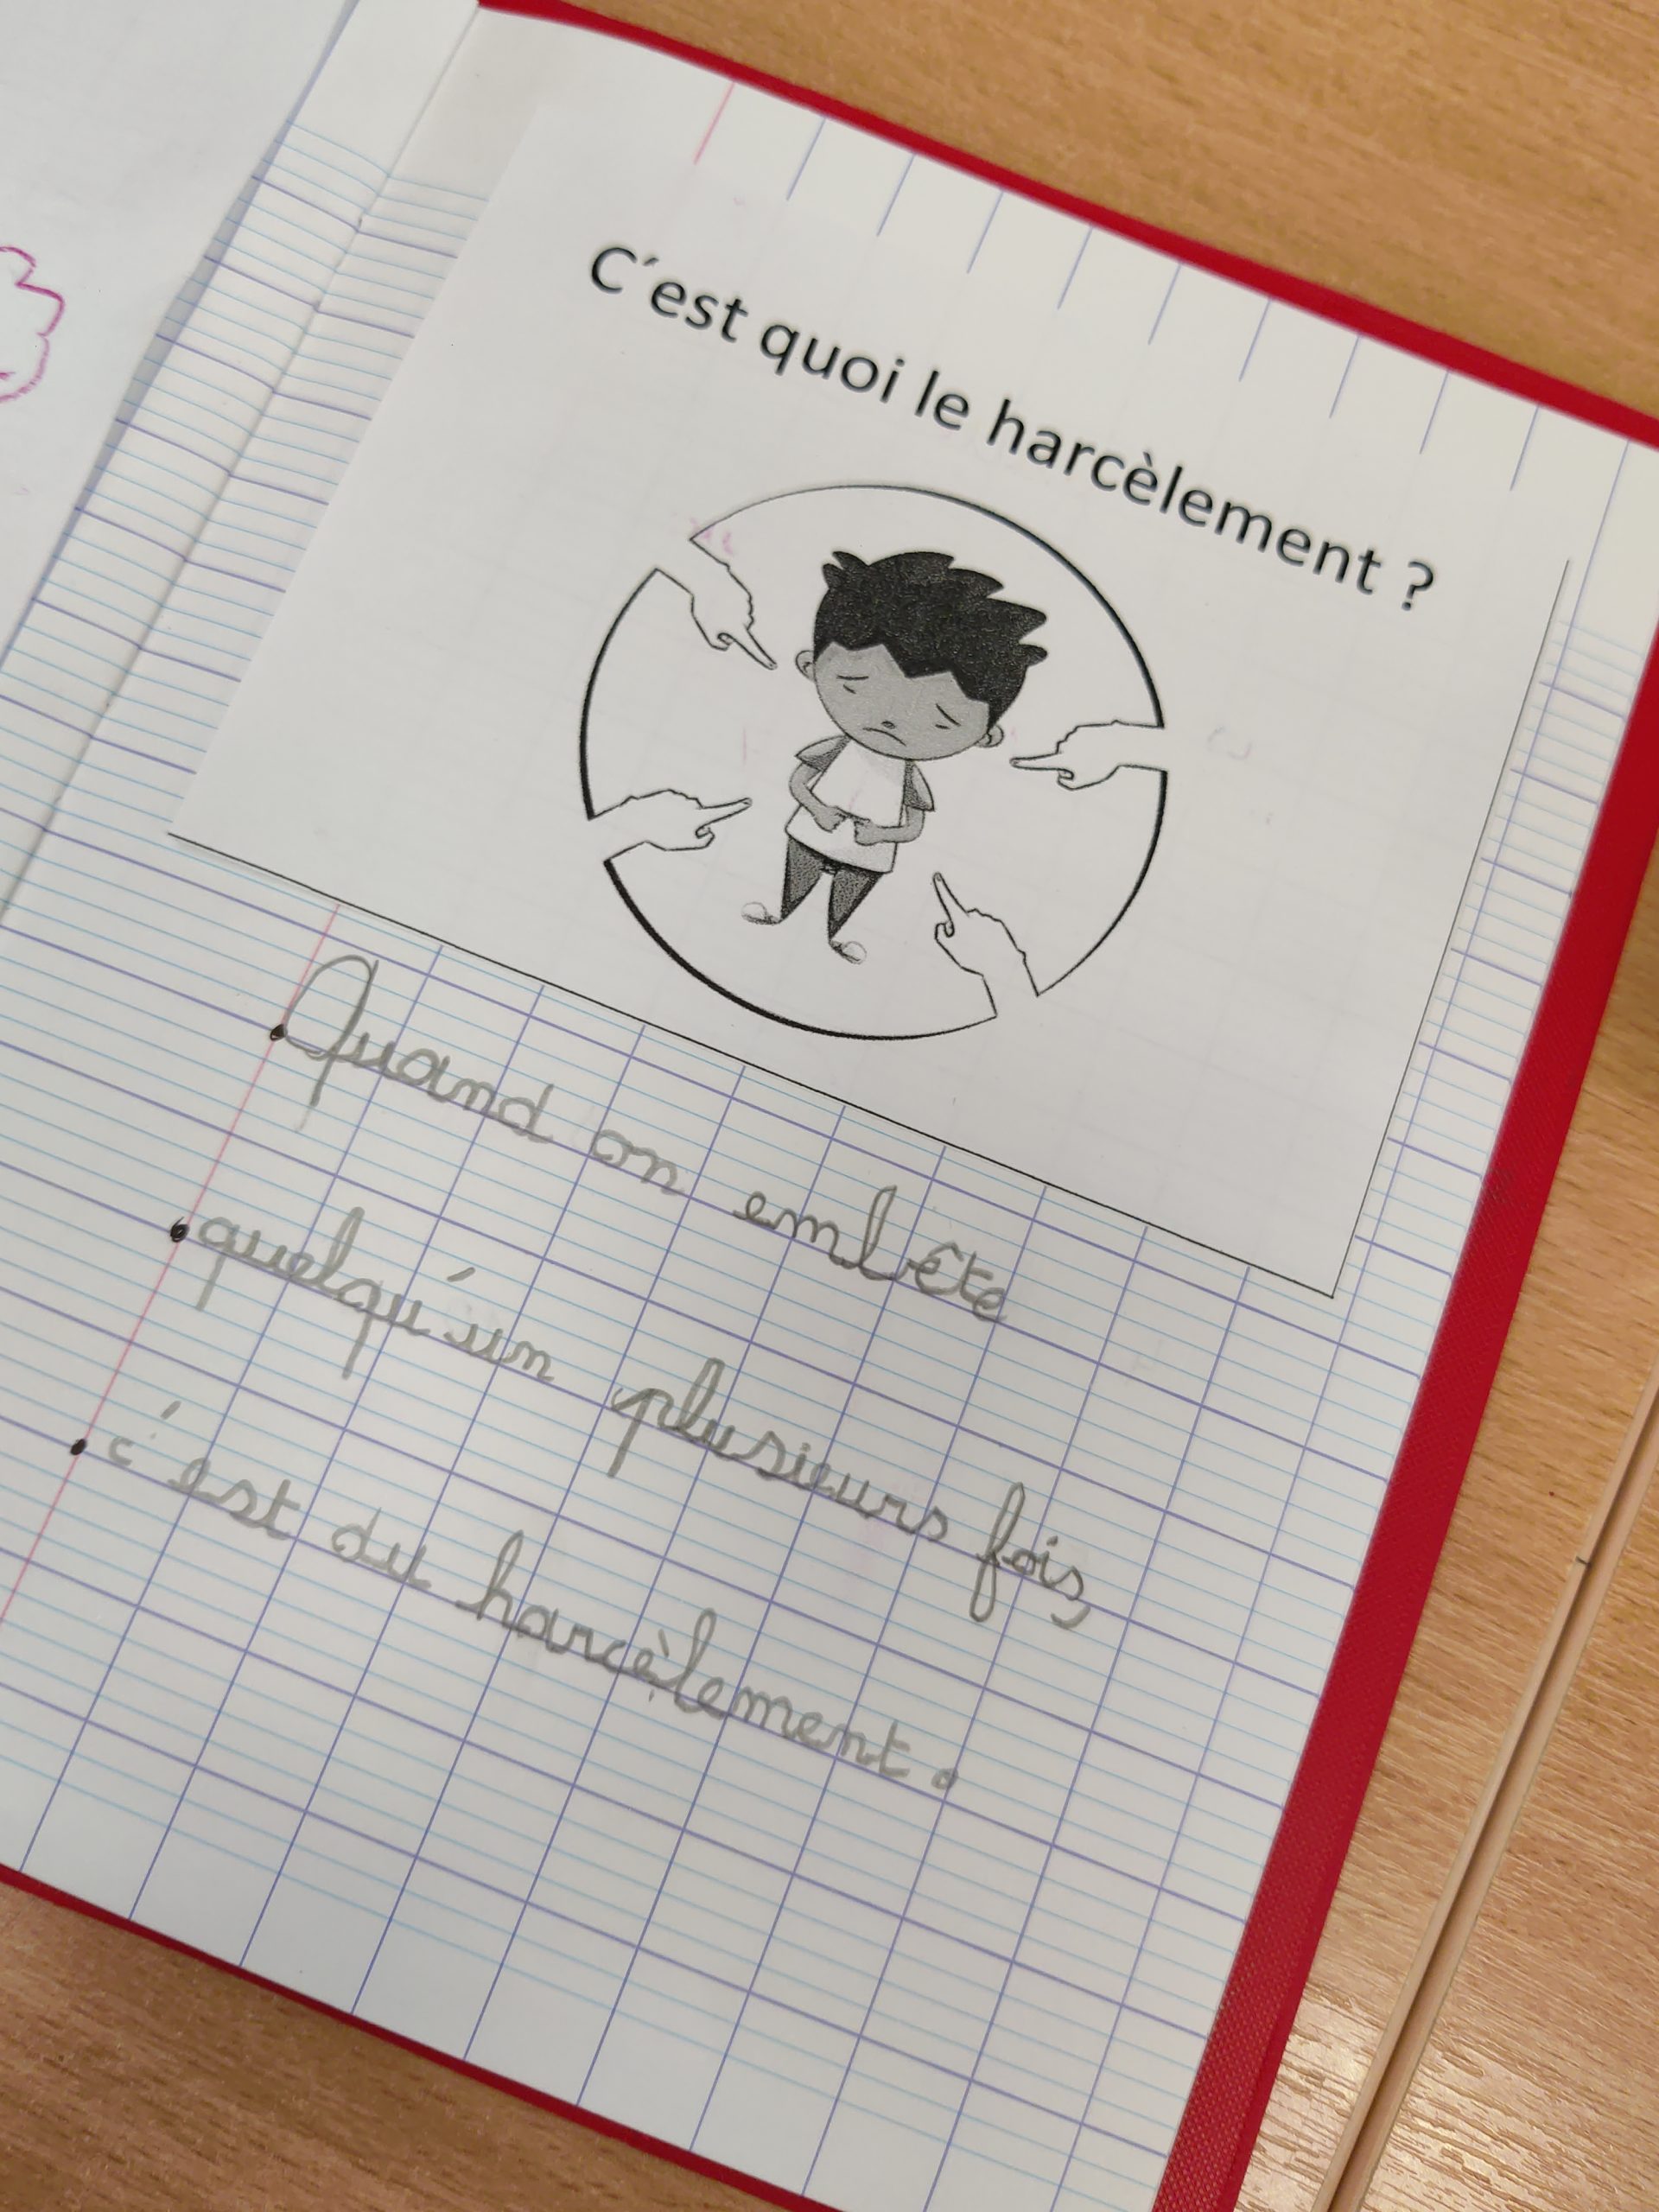 C'est quoi le harcèlement ?
Quand on embête
quelqu'un plusieurs fois,
c'est du harcèlement.